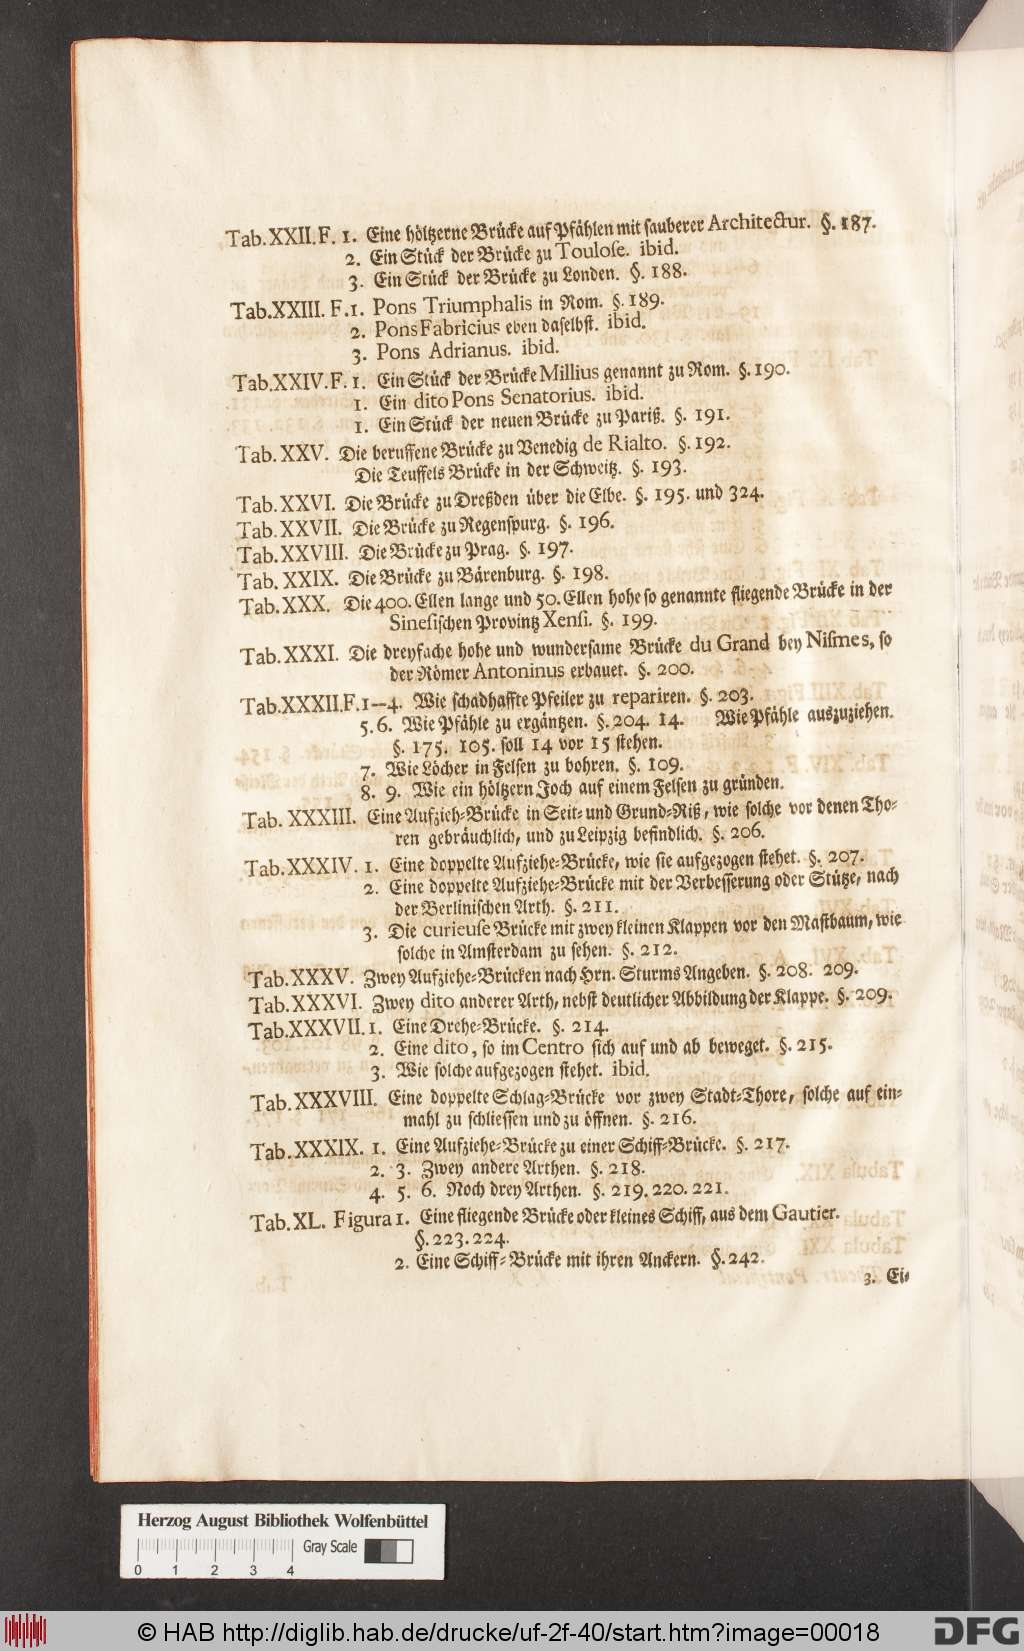 Tab. XXII. F. 1. Eine höltzerne Brücke auf Pfählen mit sauberer Architectur. §. 187.
2. Ein Stück der Brücke zu Toulose. ibid.
3. Ein Stück der Brücke zu Londen. §. 188.
Tab. XXIII. F. 1. Pons Triumphalis in Rom. §. 189.
2. Pons Fabricius eben daselbst. ibid.
3. Pons Adrianus. ibid.
Tab. XXIV. F. 1. Ein Stück der Brücke Millius genannt zu Rom. §. 190.
1. Ein dito Pons Senatorius. ibid.
1. Ein Stück der neuen Brücke zu Pariß. §. 191.
Tab. XXV. Die beruffene Brücke zu Venedig de Rialto. §. 192.
Die Teuffels Brücke in der Schweitz. §. 193.
Tab. XXVI. Die Brücke zu Dreßden über die Elbe. §. 195. und 324.
Tab. XXVII. Die Brücke zu Regenspurg. §. 196.
Tab. XXVIII. Die Brücke zu Prag. §. 197.
Tab. XXIX. Die Brücke zu Bärenburg. §. 198.
Tab. XXX. Die 400. Ellen lange und 50. Ellen hohe so genannte fliegende Brücke in der
Sinesischen Provintz Xensi. §. 199.
Tab. XXXI. Die dreyfache hohe und wundersame Brücke du Grand bey Nismes, so
der Römer Antoninus erbauet. §. 200.
Tab. XXXII. F. 1--4. Wie schadhaffte Pfeiler zu repariren. §. 203.
5. 6. Wie Pfähle zu ergäntzen. §. 204. 14. Wie Pfähle auszuziehen.
§. 175. 105. soll 14 vor 15 stehen.
7. Wie Löcher in Felsen zu bohren. §. 109.
8. 9. Wie ein höltzern Joch auf einem Felsen zu gründen.
Tab. XXXIII. Eine Aufzieh-Brücke in Seit- und Grund-Riß, wie solche vor denen Tho-
ren gebräuchlich, und zu Leipzig befindlich. §. 206.
Tab. XXXIV. 1. Eine doppelte Aufziehe-Brücke, wie sie aufgezogen stehet. §. 207.
2. Eine doppelte Aufziehe-Brücke mit der Verbesserung oder Stütze, nach
der Berlinischen Arth. §. 211.
3. Die curieuse Brücke mit zwey kleinen Klappen vor den Mastbaum, wie
solche in Amsterdam zu sehen. §. 212.
Tab. XXXV. Zwey Aufziehe-Brücken nach Hrn. Sturms Angeben. §. 208. 209.
Tab. XXXVI. Zwey dito anderer Arth, nebst deutlicher Abbildung der Klappe. §. 209.
Tab. XXXVII. 1. Eine Drehe-Brücke. §. 214.
2. Eine dito, so im Centro sich auf und ab beweget. §. 215.
3. Wie solche aufgezogen stehet. ibid.
Tab. XXXVIII. Eine doppelte Schlag-Brücke vor zwey Stadt-Thore, solche auf ein-
mahl zu schliessen und zu öffnen. §. 216.
Tab. XXXIX. 1. Eine Aufziehe-Brücke zu einer Schiff-Brücke. §. 217.
2. 3. Zwey andere Arthen. §. 218.
4. 5. 6. Noch drey Arthen. §. 219. 220. 221.
Tab. XL. Figura 1. Eine fliegende Brücke oder kleines Schiff, aus dem Gautier.
§. 223. 224.
2. Eine Schiff-Brücke mit ihren Anckern. §. 242.
3. Ei-
Herzog August Bibliothek Wolfenbüttel
Gray Scale
0 1 2 3 4
© HAB http://diglib.hab.de/drucke/uf-2f-40/start.htm?image=00018
DFG